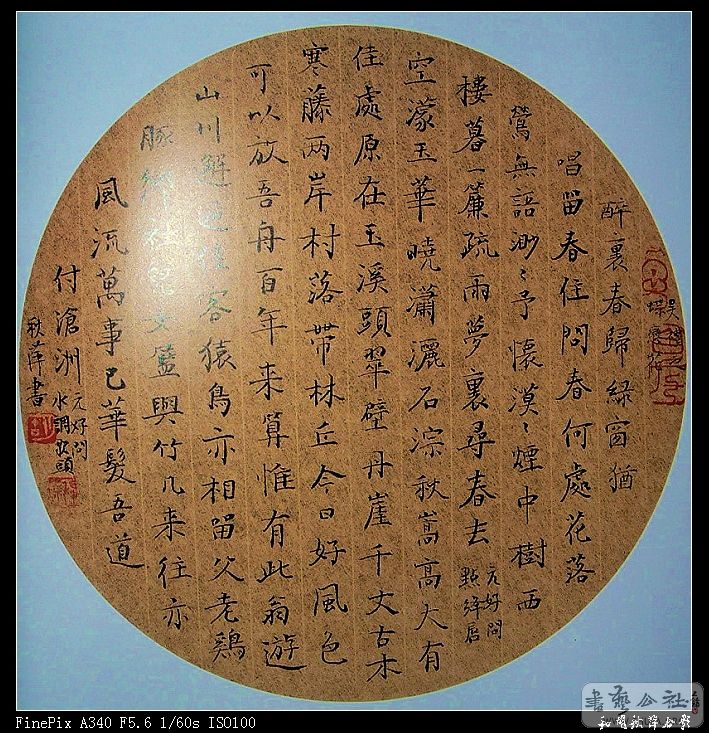 醉裏春歸綠窗猶
唱留春住問春何處花落
鶯無語渺〻予懷漠〻煙中樹西
樓暮一簾疏雨夢裏尋春去
元好問
點絳唇
空濛玉華曉瀟灑石淙秋嵩高大有
佳處原在玉溪頭翠壁丹崖千丈古木
寒藤兩岸村落帶林丘今日好風色
可以放吾舟百年來算惟有此翁遊
山川邂逅佳客猿鳥亦相留父老鷄
豚鄉社兒女籃輿竹几來往亦
風流萬事已華髮吾道
付滄洲
元好問
水調歌頭
秋萍書
書藝公社
FinePix A340 F5.6 1/60s ISO100